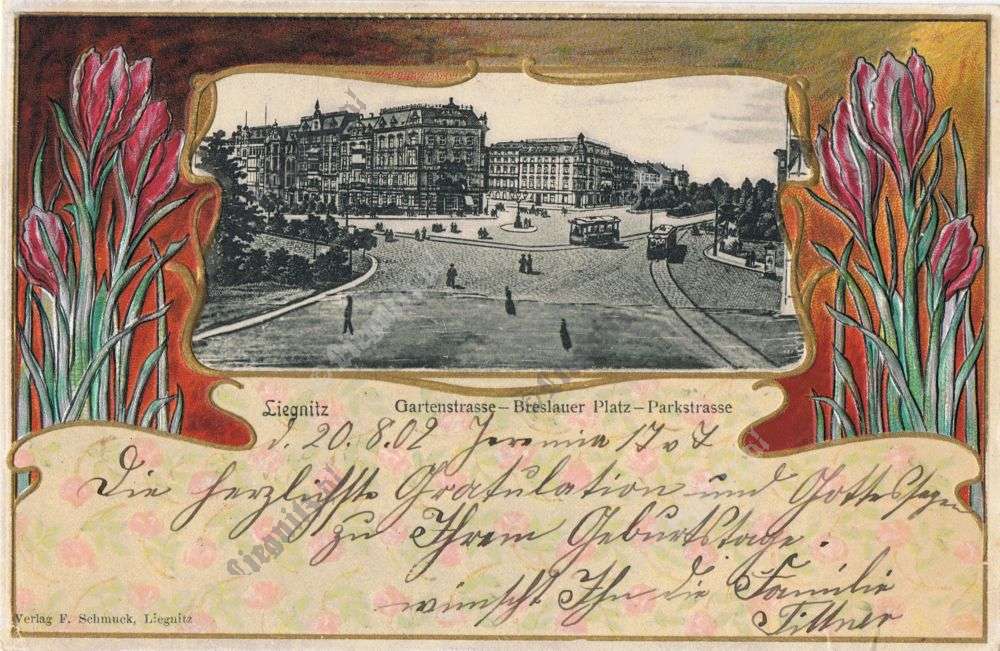 Liegnitz Gartenstrasse – Breslauer Platz – Parkstrasse
d. 20.8.02 Jeremia 17 v 7
Die herzlichste Gratulation und Gottessegen
zu Ihrem Geburtstage.
wünscht Ihn die Familie
Tittner
Verlag F. Schmuck, Liegnitz